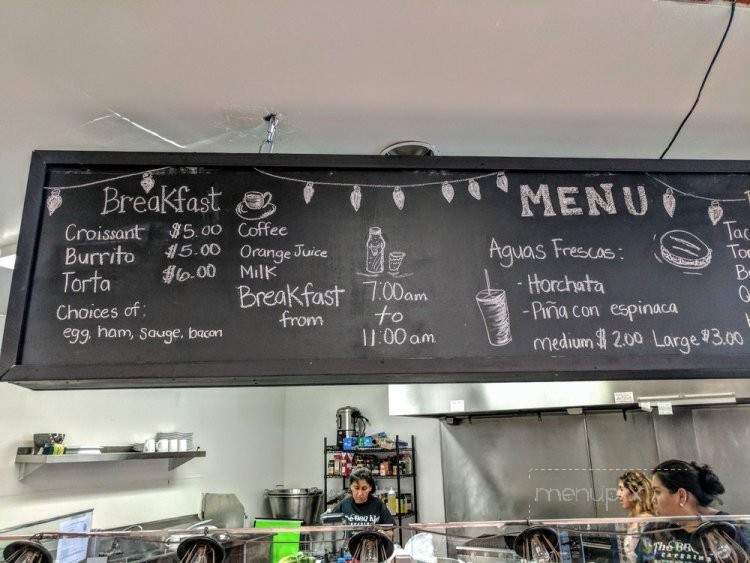 Breakfast
Croissant $5.00
Burrito $5.00
Torta $6.00
Choices of:
egg, ham, sauge, bacon
Coffee
Orange Juice
Milk
Breakfast from 7:00am to 11:00am
MENU
Aguas Frescas:
- Horchata
- Piña con espinaca
medium $2.00 Large $3.00
Tac
To
B
menup
The BBQ
CATERING